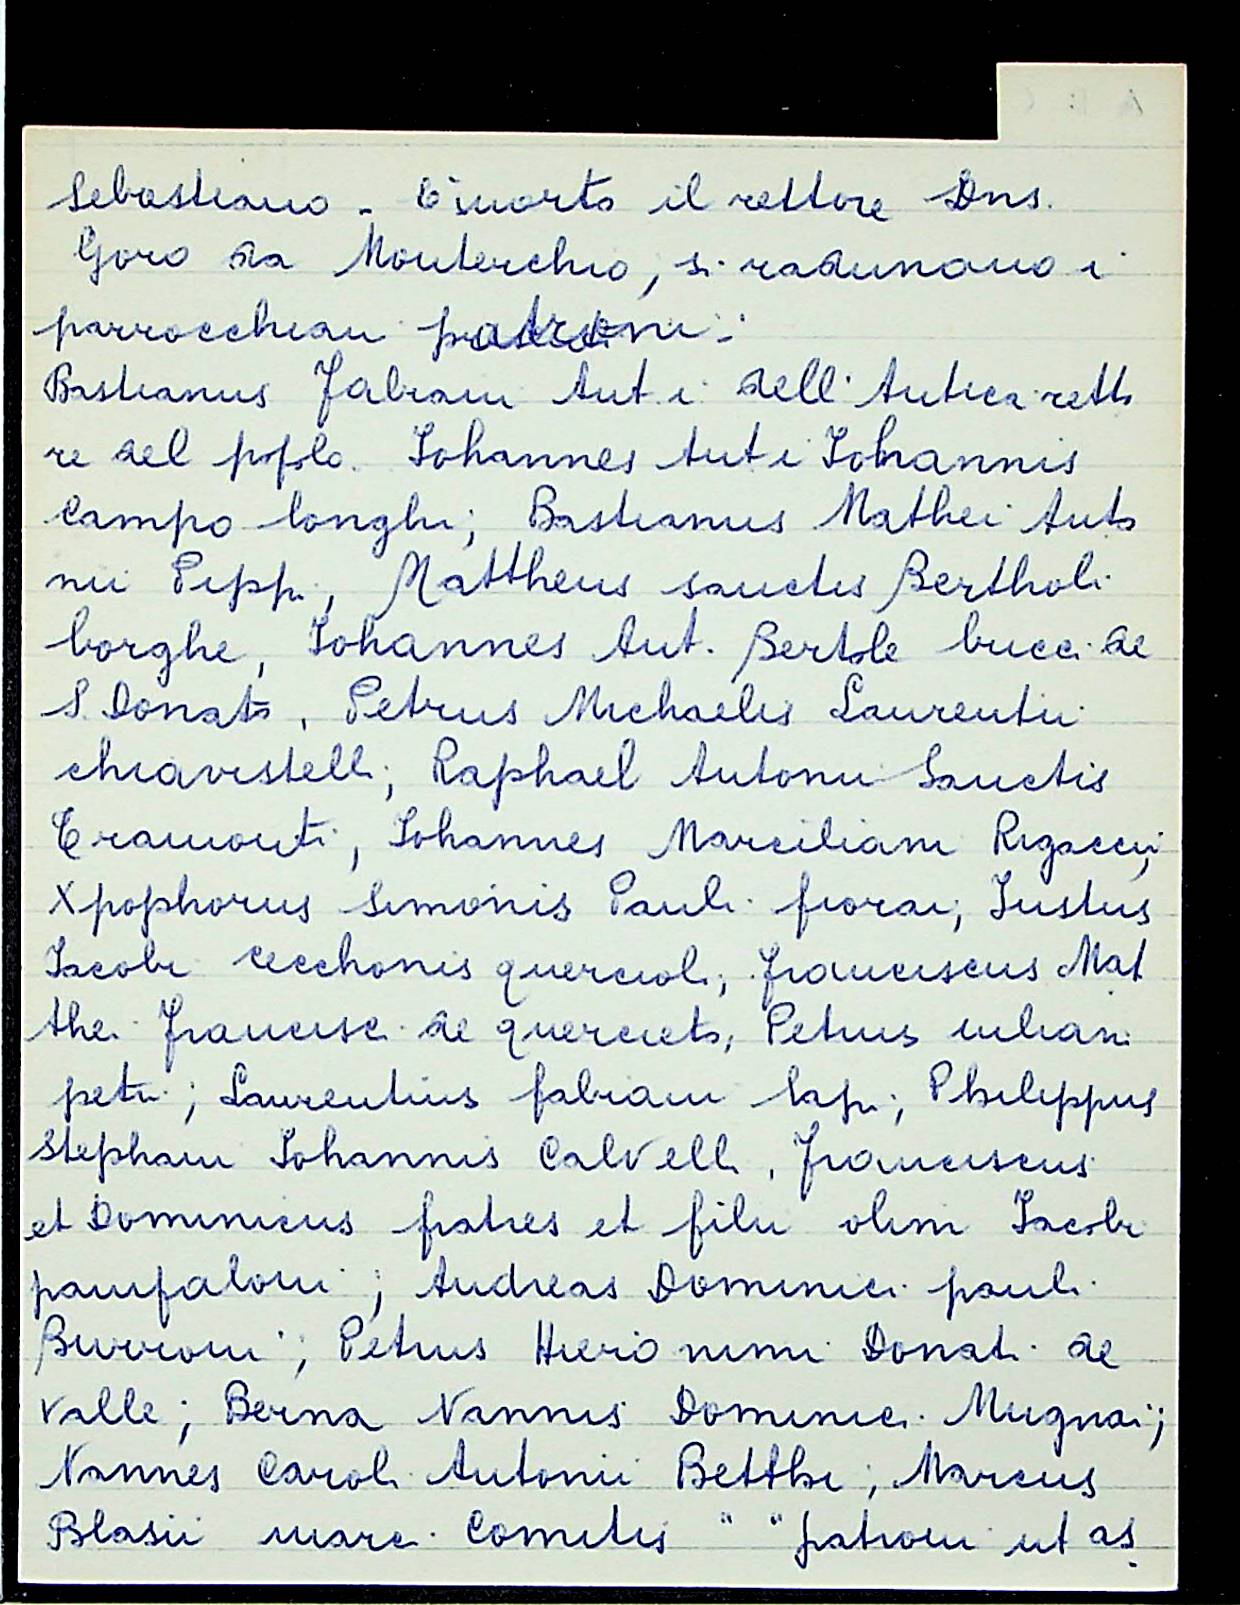 Sebastiano - E' morto il rettore Dns.
Goro da Monterchio, si radunano i
parrocchiani patroni:
Bastianus Fabiani Ant.i dell'Antica retto
re del popolo. Iohannes Anti Iohannis
Campo longhi; Bastianus Mathei Anto
nii Pippi, Mattheus sanctis Bertholi
borghe, Iohannes Ant. Bertole bucci de
S. Donato, Petrus Michaelis Laurentii
chiavistelli; Raphael Antonii Sanctis
Tramonti, Iohannes Marciliani Rigaccii;
Xpophorus Simonis Pauli fiorai; Iustus
Iacobi cecchonis quercioli; franciscus Mat
thei francisci de querceto; Petrus iuliani
petri; Laurentius fabiani lapi; Philippus
Stephani Iohannis Calvelli, franciscus
et Dominicus fratres et filii olim Iacobi
panfaloni; Andreas Dominici pauli
Burroni; Petrus Hieronimi Donati de
Valle; Berna Nannis Dominici Mugnai;
Nannes Caroli Antonii Betthi; Marcus
Blasii marci Comitis " " patroni ut as